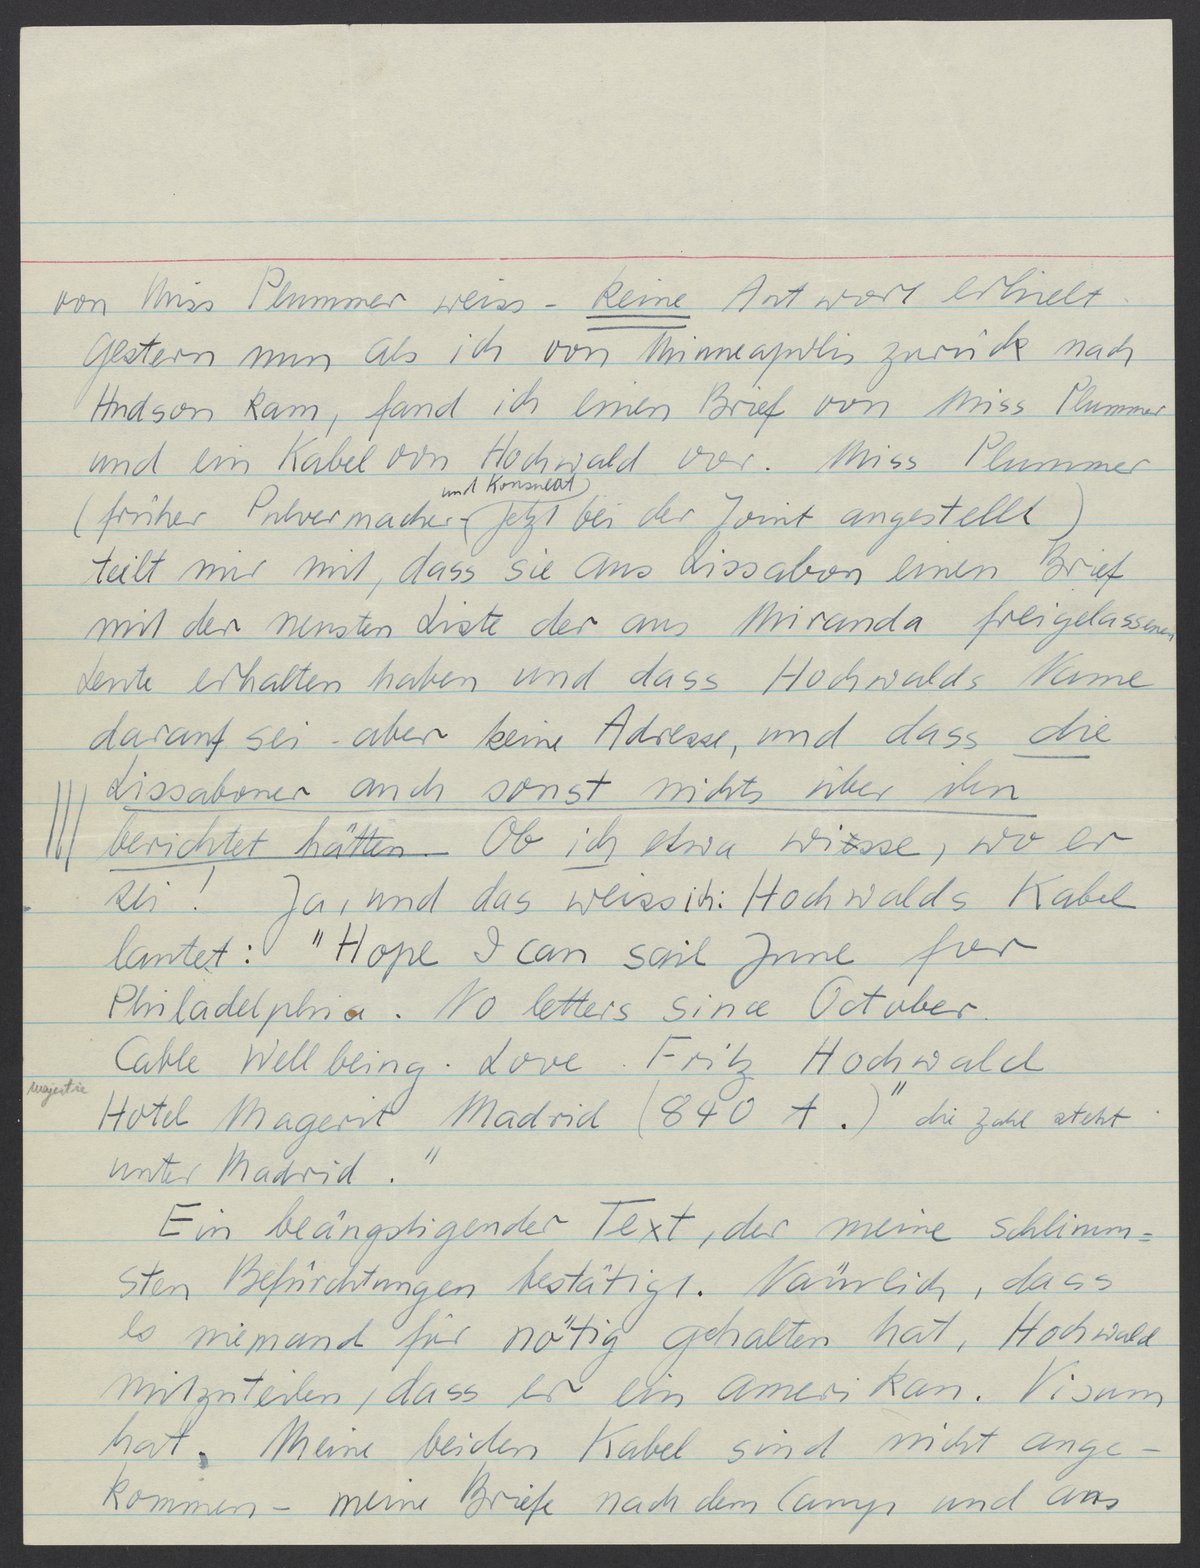 von Miss Plummer weiss - keine Antwort erhielt.
Gestern nun als ich von Minneapolis zurück nach
Hudson kam, fand ich einen Brief von Miss Plummer
und ein Kabel von Hochwald vor. Miss Plummer
und Konsulat
(früher Pulvermacher - jetzt bei der Joint angestellt)
teilt mir mit, dass sie aus Lissabon einen Brief
mit der neusten Liste der aus Miranda freigelassenen
Leute erhalten haben und dass Hochwalds Name
darauf sei - aber keine Adresse, und dass die
Lissaboner auch sonst nichts über ihn
berichtet hätten. Ob ich etwa wisse, wo er
sei! Ja, und das weiss ich: Hochwalds Kabel
lautet: "Hope I can sail June for
Philadelphia. No letters since October.
Cable Wellbeing. Love Fritz Hochwald
Majestic
Hotel Magerit Madrid (840 t.)" die Zahl steht
unter Madrid."
Ein beängstigender Text, der meine schlimm=
sten Befürchtungen bestätigt. Nämlich, dass
es niemand für nötig gehalten hat, Hochwald
mitzuteilen, dass er ein amerikan. Visum
hat. Meine beiden Kabel sind nicht ange-
kommen - meine Briefe nach dem Camp und ans